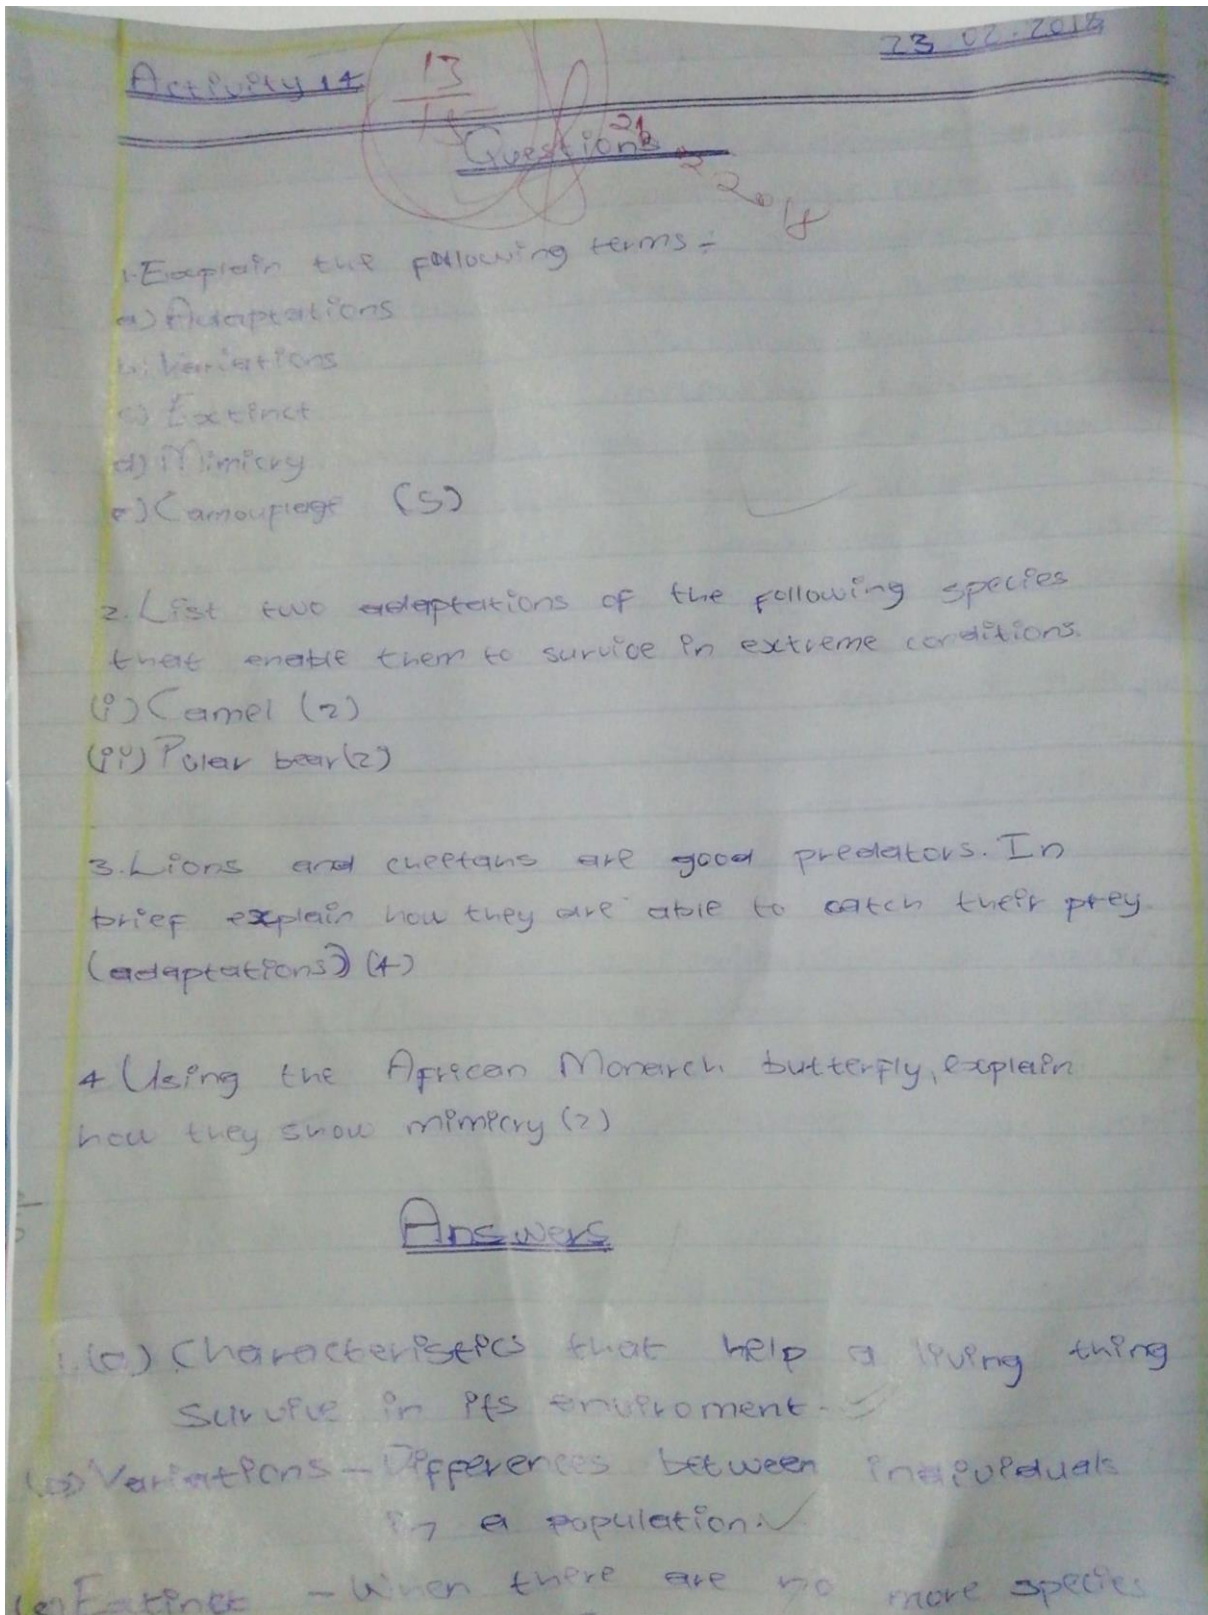 23 02.2018
Activity 14
13
15
Questions
21
2
2018
1. Explain the following terms :-
a) Adaptations
b) Variations
c) Extinct
d) Mimicry
e) Camouflage (5)
2. List two adaptations of the following species
that enable them to survive in extreme conditions.
(i) Camel (2)
(ii) Polar bear (2)
3. Lions and cheetahs are good predators. In
brief explain how they are able to catch their prey
(adaptations) (4)
4 Using the African Monarch butterfly, explain
how they show mimicry (2)
Answers
1.(a) Characteristics that help a living thing
survive in its enviroment.
(b) Variations – Differences between individuals
in a population.
(c) Extinct – When there are no more species